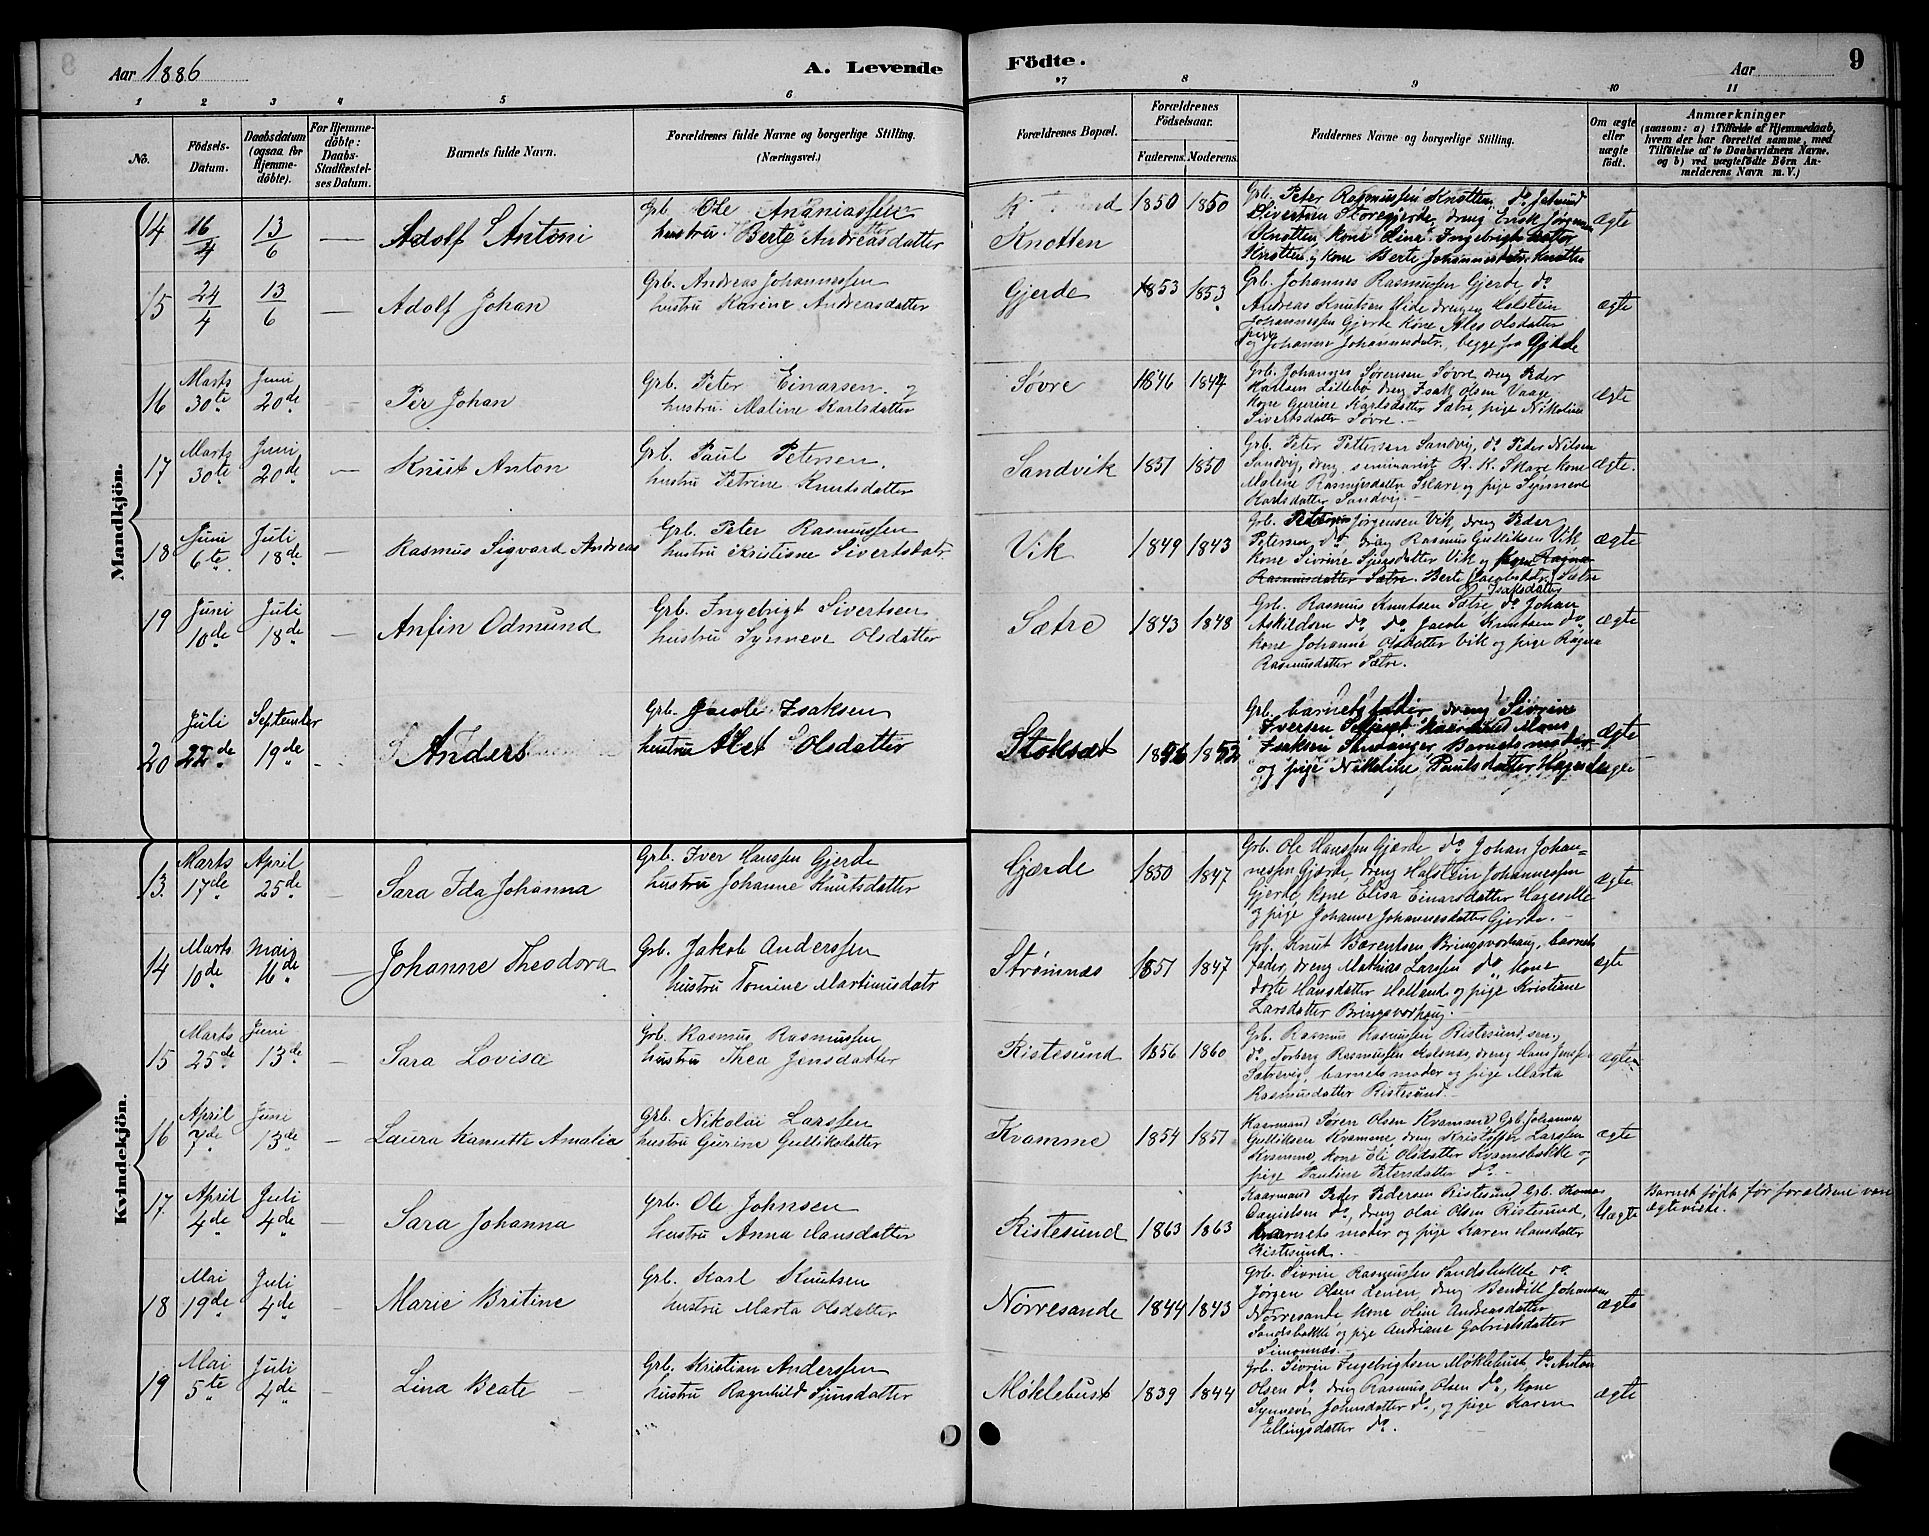 Aar 1886
A. Levende
Födte.
Aar
9
1 2 3 4 5 6 7 8 9 10 11
No.
Födsels-
Datum.
Daabsdatum
(ogsaa for
Hjemme-
döbte).
For Hjemme-
döbte:
Daabs-
Stadfæstel-
ses Datum.
Barnets fulde Navn.
Forældrenes fulde Navne og borgerlige Stilling.
(Næringsvei.)
Forældrenes Bopæl.
Forældrenes
Födselsaar.
Faderens. Moderens.
Faddernes Navne og borgerlige Stilling.
Om ægte
eller
uægte
født.
Anmærkninger
(saasom: a) i Tilfælde af Hjemmedaab,
hvem der har forrettet samme, med
Tilföielse af to Daabsvidners Navne.
og b) ved uægtefödte Börn An-
melderens Navn m. V.)
Mandkjön.
14 16/4 13/6 — Adolf Antoni
Grb. Ole Ananiassen
hustru Berte Andreasdatter
Knotten
1850 1850
Grb. Peter Rasmussen Knotten, do
Sivertsen Storegjerde, dreng Enok Jørgensen
Knotten kone Lina Ingebrigtsdatter
Knotten og kone Berte Johannesdatr Knotten
ægte
15 24/4 13/6 — Adolf Johan
Grb. Andreas Johannessen
hustru Karine Andreasdatter
Gjerde
1853 1853
Grb. Johannes Rasmussen Gjerde do
Andreas Knutsen Hide drengen Halstein
Johannessen Gjerde kone Ales Olsdatter
og pige Johanne Johannesdatr, begge fra Gjerde
ægte
16 Marts 30te Juni 20de — Per Johan
Grb. Peter Einarsen og
hustru Maline Karlsdatter
Søvre
1846 1844
Grb. Johannes Sørensen Søvre, dreng Peder
Karlsen Lillebø dreng Isak Olsen Vaage
kone Gurine Karlsdatter Sætre, pige Nikoline
Sivertsdatter Søvre.
ægte
17 Marts 30te Juni 20de — Knut Anton
Grb. Paul Petersen.
hustru Petrine Knutsdatter
Sandvik
1851 1850
Grb. Peter Pettersen Sandvig, do Peder Nilsen
Sandvig, dreng seminarist R. K. Skare kone
Malene Rasmusdatter Skare og pige Synneve
Karlsdatter Sandvig.
ægte.
18 Juni 6te Juli 18de — Rasmus Sigvard Andreas
Grb. Peter Rasmussen
hustru Kristiane Sivertsdatr
Vik
1849 1843
Grb. Jørgensen Vik, dreng Peder
Petersen do, dreng Rasmus Gulliksen Vik
kone Sivrine Sjursdatter Vik og pigen Ragna
Rasmusdatter Sætre. Berte Jacobsdatr Sætre
Isaksdatter
ægte
19 Juni 10de Juli 18de — Anfin Odmund
Grb. Ingebrigt Sivertsen
hustru Synneve Olsdatter
Sætre
1843 1848
Grb. Rasmus Knutsen Sætre do Johan
Askildsen do do Jacob Knutsen do
kone Johanne Olsdatter Vik og pige Ragna
Rasmusdatter Sætre.
ægte
20 Juli 22de September 19de Anders
Grb. Jacob Isaksen
hustru Alet Olsdatter
Stoksæt
1856 1852
Grb. barnets fader dreng Sivrine
Iversen Kaarmand Mons
Isaksen Barnets moder
og pige Nikoline Paulsdatter
ægte
ægte
Kvindekjön.
13. Marts 17de April 25de Sara Ida Johanna
Grb. Iver Hanssen Gjerde
hustru Johanne Knutsdatter
Gjærde
1850 1847
Grb. Ole Hanssen Gjærde do Johan Johan=
nessen Gjærde, dreng Halstein Johannessen
Gjerde, kone Elisa Einarsdatter
og pige Johanne Johannesdatter Gjerde.
ægte
14 Marts 10de Mai 16de — Johanne Theodora
Grb. Jakob Anderssen
hustru Tomine Martinusdatr
Strømnæs
1851 1847
Grb. Knut Barentsen Bringsvorhaug, barnets
fader, dreng Mathias Larssen do, kone
Dorte Hansdatter Helland og pige Kristiane
Larsdatter Bringsvorhaug.
ægte
15 Marts 25de Juni 13de — Sara Lovise
Grb. Rasmus Rasmussen
hustru Thea Jensdatter
Ristesund
1856 1860
Grb. Rasmus Rasmussen Ristesund, sen,
do, Torberg Rasmussen dreng Hans Jenssen
Sætrevig, barnets moder og pige Marta
Rasmusdatter Ristesund.
ægte
16 April 7de Juni 13de — Laura Kanutte Amalia
Grb. Nikolai Larssen
hustru Gurine Gulliksdatter
Kvamme
1854 1851
Kaarmand Søren Olsen Kvamme Grb. Johannes
Gulliksen Kvamme, dreng Kristoffer Larssen
Kvamme, kone Eli Olsdatter Kvamsbakke og
pige Pauline Petersdatter do
ægte
17 April 4de Juli 4de — Sara Johanna
Grb. Ole Johnsen
hustru Anna Hansdatter
Ristesund
1863 1863
Kaarmand Peder Pedersen Ristesund Grb. Thomas
Danielsen do, dreng Olai Olsen Ristesund,
barnets moder og pige Karen Hansdatter
Ristesund.
Uægte
Barnet født før forældrene vare
ægteviede.
18 Mai 19de Juli 4de — Marie Britine
Grb. Karl Knutsen
hustru Marta Olsdatter
Nørresande
1844 1843
Grb. Sivrin Rasmussen Sandsbakke do
Jørgen Olsen dreng Bendik Johansen
Nørresande kone Oline Andreasdatter
Sandsbakke og pige Andriane Gabrielsdatter
Simonnæs.
ægte
19 Mai 5te Juli 4de — Lina Beate
Grb. Kristian Anderssen
hustru Ragnhild Sjursdatter
Møklebust
1839 1844
Grb. Sivrin Ingebrigtsen Møklebust do Anton
Olsen do, dreng Rasmus Olsen do, kone
Synneve Johnsdatter do, og pige Karen
Ellingsdatter do.
ægte